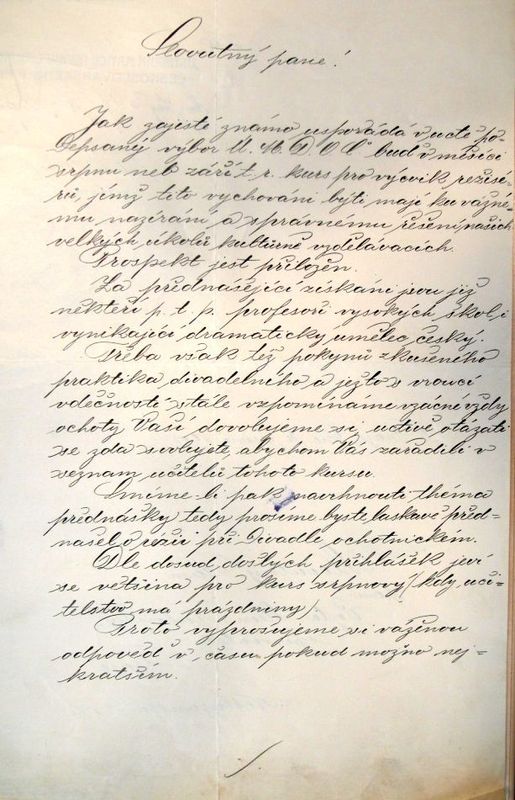 Slovutný pane!
Jak zajisté známo uspořádá v úctě po-
depsaný výbor Ú. M. D. O. Č. buď v měsíci
srpnu neb září t. r. kurs pro výcvik režisé-
rů, jimž tito vychováni býti mají ku vážné-
mu nazírání a správnému řešení našich
velkých úkolů kulturně vzdělávacích.
Prospekt jest přiložen.
Za přednášející získáni jsou již
někteří p. t. p. profesoři vysokých škol i
vynikající dramatický umělec český.
Třeba však též pokynů zkušeného
praktika divadelního a ježto s vroucí
vděčností stále vzpomínáme vzácné vždy
ochoty Vaší dovolujeme si uctivě otázati
se zda svolujete, abychom Vás zařadili v
seznam učitelů tohoto kursu.
Smíme-li pak navrhnouti théma
přednášky tedy prosíme byste laskavě před-
nášel o režii při divadle ochotnickém.
Dle dosud došlých přihlášek jeví
se většina pro kurs srpnový (kdy uči-
telstvo má prázdniny).
Proto vyprošujeme si váženou
odpověď v času pokud možno nej-
kratším.